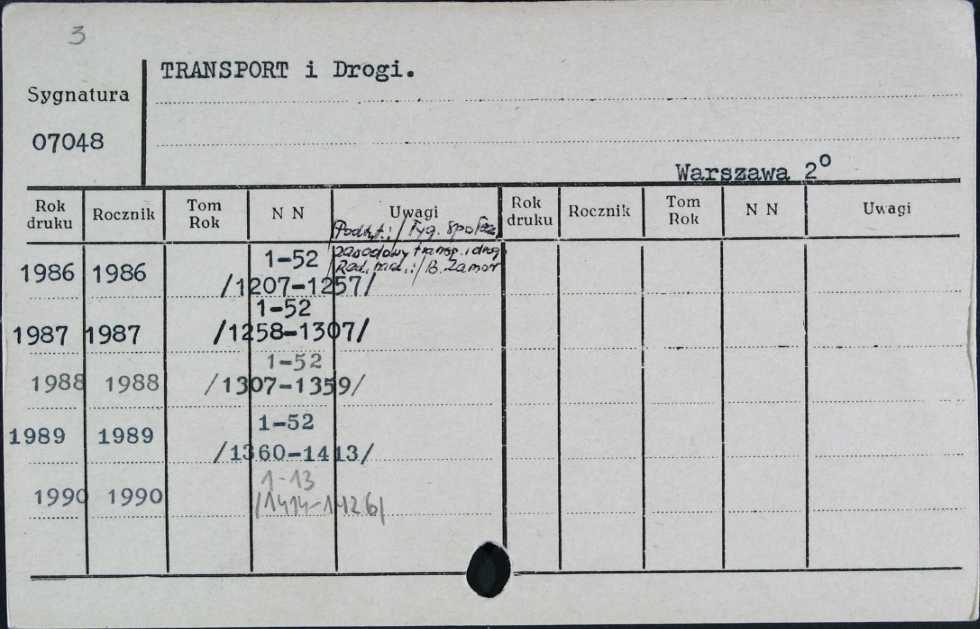 3
TRANSPORT i Drogi.
Sygnatura
07048
Warszawa 2°
Rok druku Rocznik Tom Rok N N Uwagi Rok druku Rocznik Tom Rok N N Uwagi
/Podtyt.:/ Tyg. społecz.
zawodowy transp. i drog.
Red. nacz.:/ B. Zamor
1986 1986 1-52
/1207-1257/
1987 1987 1-52
/1258-1307/
1988 1988 1-52
/1307-1359/
1989 1989 1-52
/1360-1413/
1990 1990 1-13
/1414-1426/